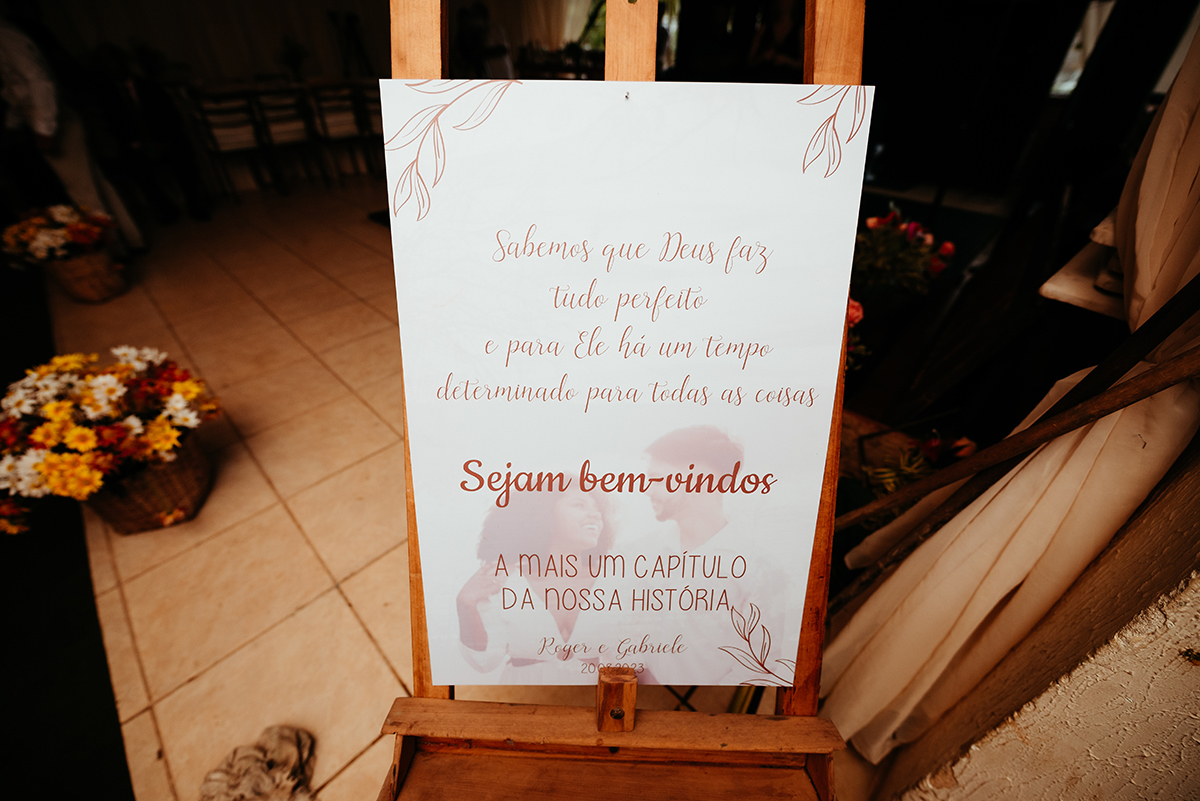 Sabemos que Deus faz
tudo perfeito
e para Ele há um tempo
determinado para todas as coisas
Sejam bem-vindos
A MAIS UM CAPÍTULO
DA NOSSA HISTÓRIA
Roger e Gabriele